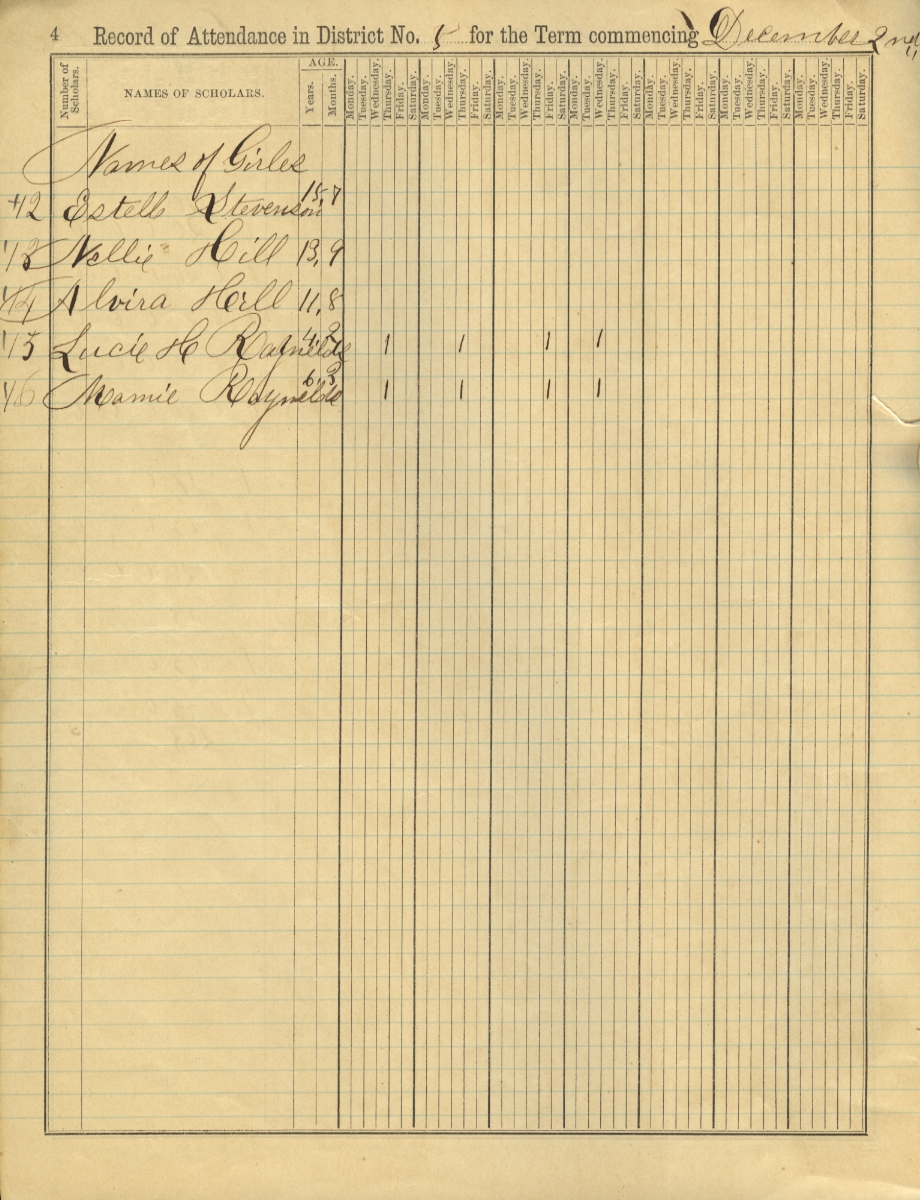 4 Record of Attendance in District No. 5 for the Term commencing December 2nd
Number of Scholars. NAMES OF SCHOLARS. AGE. Years. Months. Monday. Tuesday. Wednesday. Thursday. Friday. Saturday. Monday. Tuesday. Wednesday. Thursday. Friday. Saturday. Monday. Tuesday. Wednesday. Thursday. Friday. Saturday. Monday. Tuesday. Wednesday. Thursday. Friday. Saturday. Monday. Tuesday. Wednesday. Thursday. Friday. Saturday. Monday. Tuesday. Wednesday. Thursday. Friday. Saturday. Monday. Tuesday. Wednesday. Thursday. Friday. Saturday.
Names of Girles
42 Estell Stevenson 15,7
43 Nellie Hill 13,9
44 Alvira Hill 11,8
45 Lucie H Raynelds 1 1 1 1
46 Mamie Raynelds 1 1 1 1